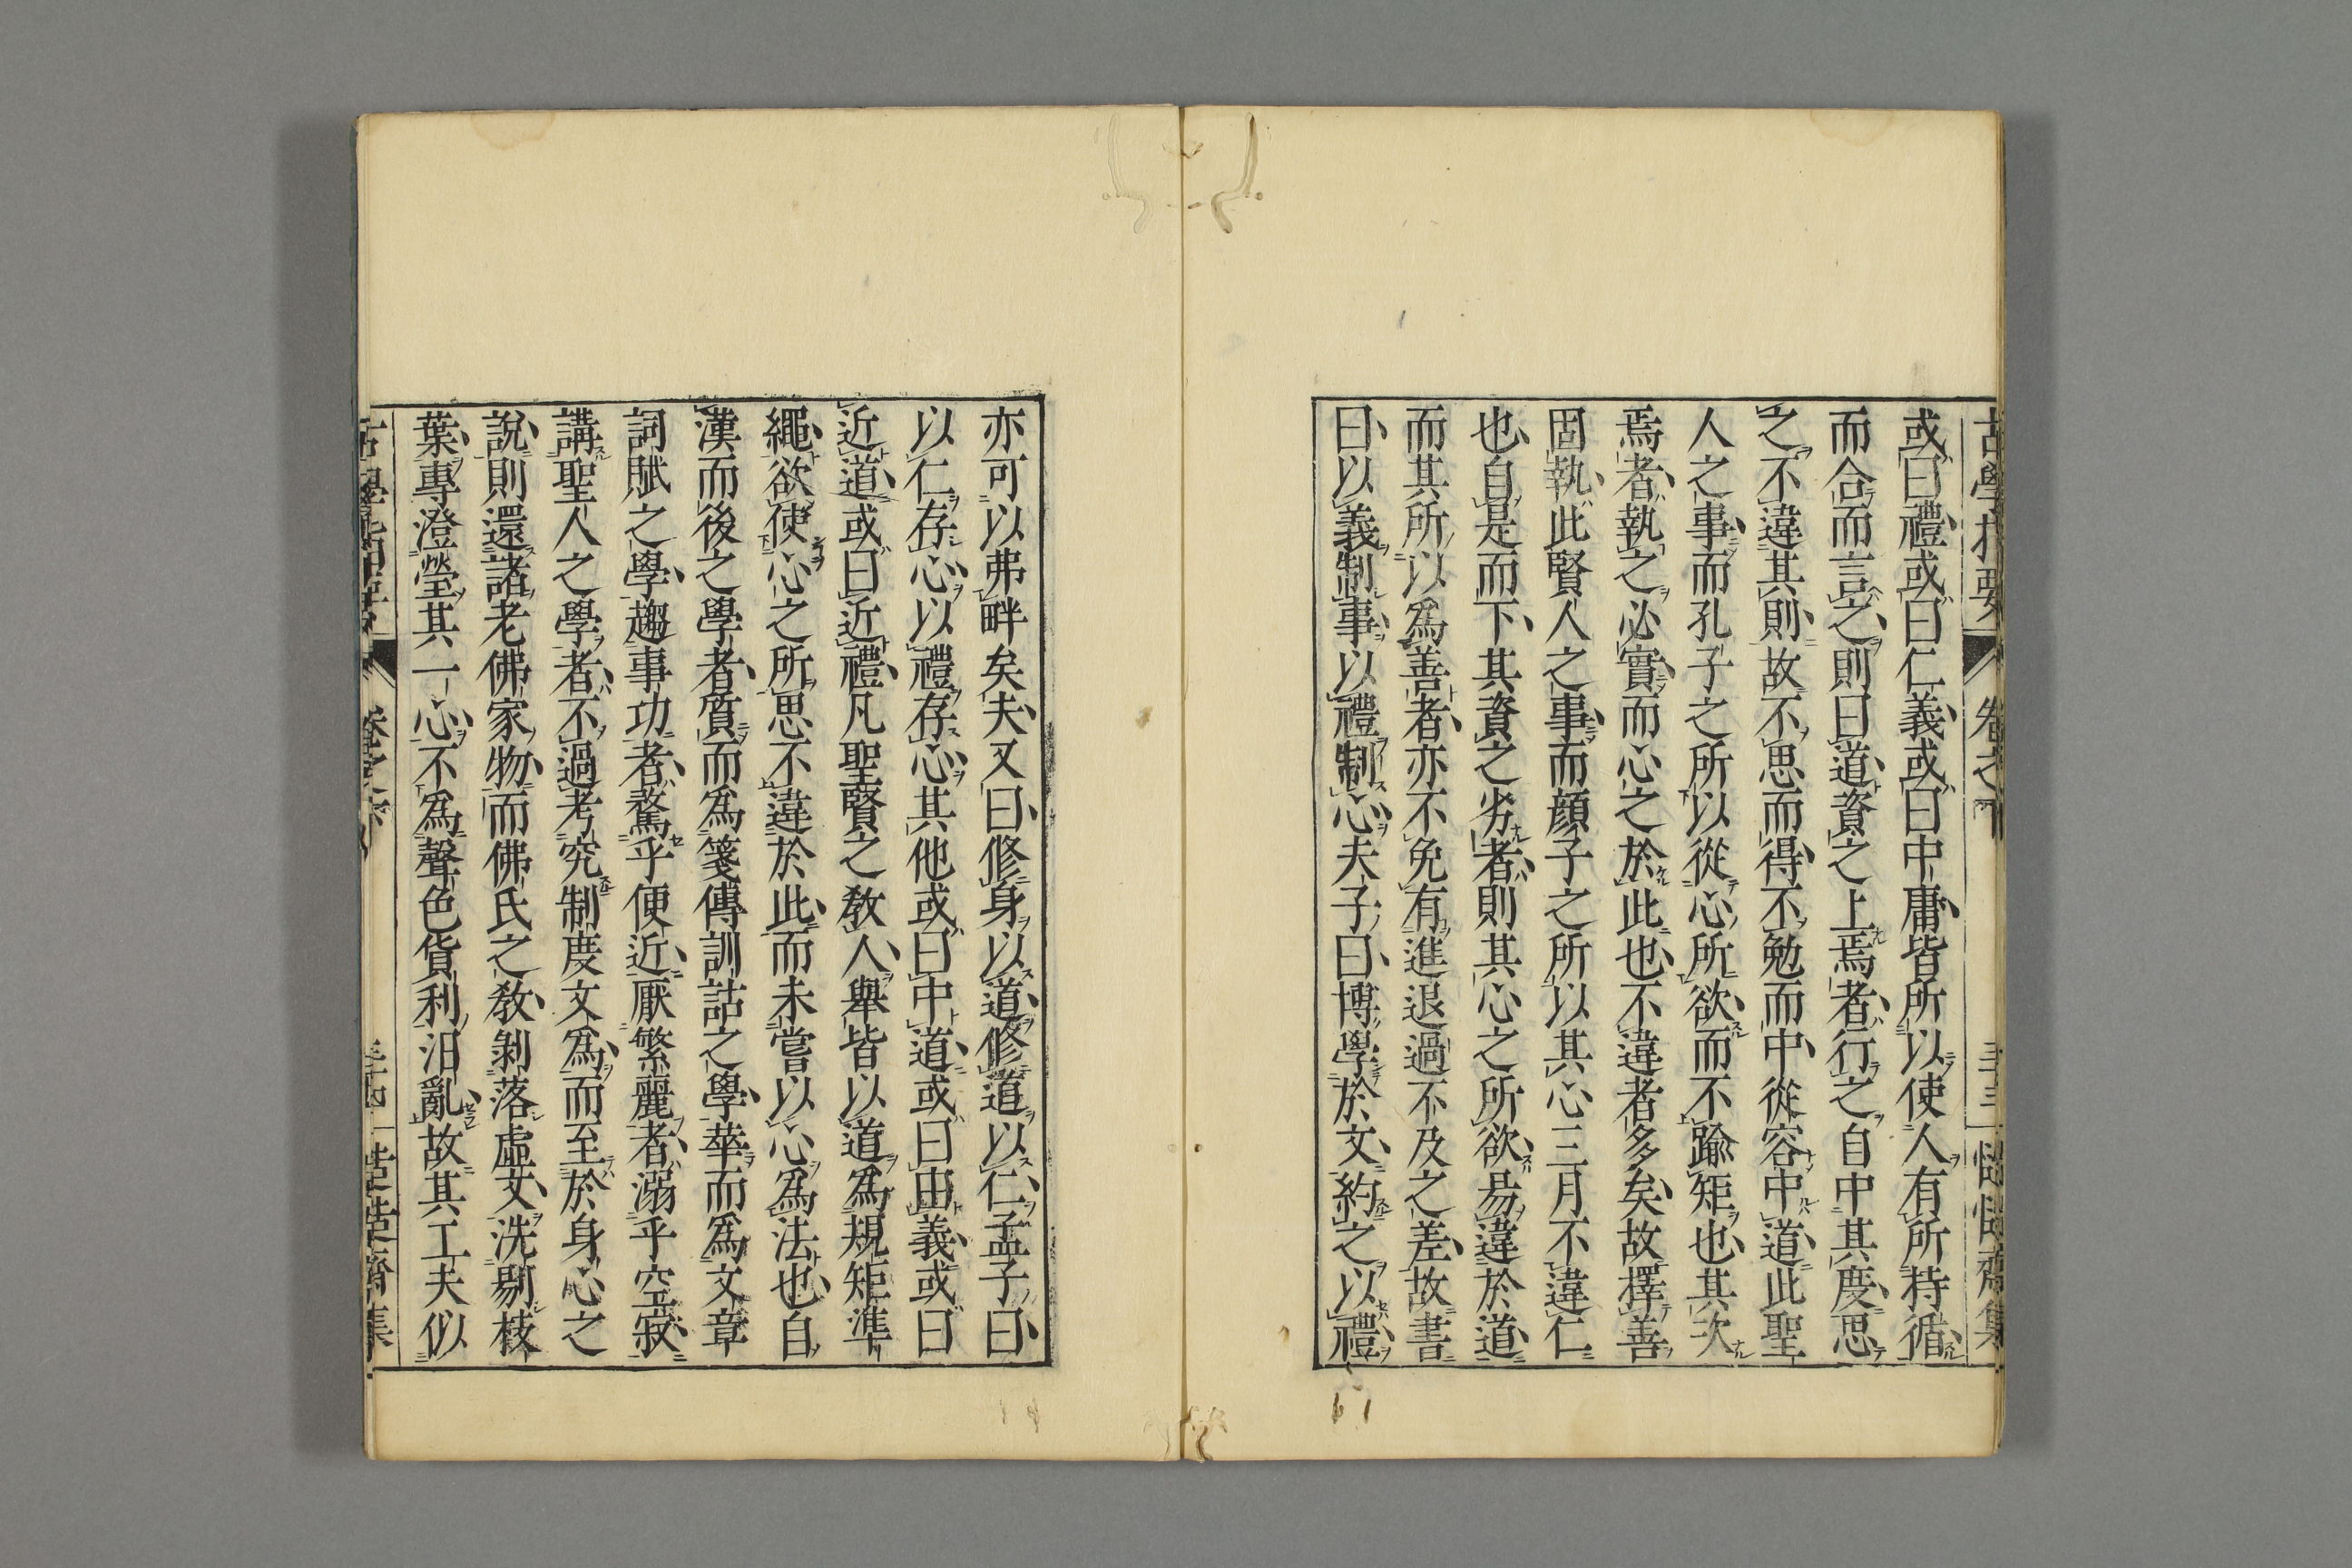 古學指要 卷之下 三十三
或曰禮或曰仁義或曰中庸皆所以使人有所持循
而合而言之則曰道資之上焉者行之自中其度思
之不違其則故不思而得不勉而中從容中道此聖
人之事而孔子之所以從心所欲而不踰矩也其次
焉者執之必實而心之於此也不違者多矣故擇善
固執此賢人之事而顔子之所以其心三月不違仁
也自是而下其資之劣者則其心之所欲易違於道
而其所以爲善者亦不免有進退過不及之差故書
曰以義制事以禮制心夫子曰博學於文約之以禮
亦可以弗畔矣夫又曰修身以道修道以仁孟子曰
以仁存心以禮存心其他或曰中道或曰由義或曰
近道或曰近禮凡聖賢之敎人舉皆以道爲規矩準
繩欲使心之所思不違於此而未嘗以心爲法也自
漢而後之學者質而爲箋傳訓詁之學華而爲文章
詞賦之學趨事功者騖乎便近厭繁麗者溺乎空寂
講聖人之學者不過考究制度文爲而至於身心之
說則還諸老佛家物而佛氏之敎剝落虛文洗剔枝
葉專澄瑩其一心不爲聲色貨利汨亂故其工夫似